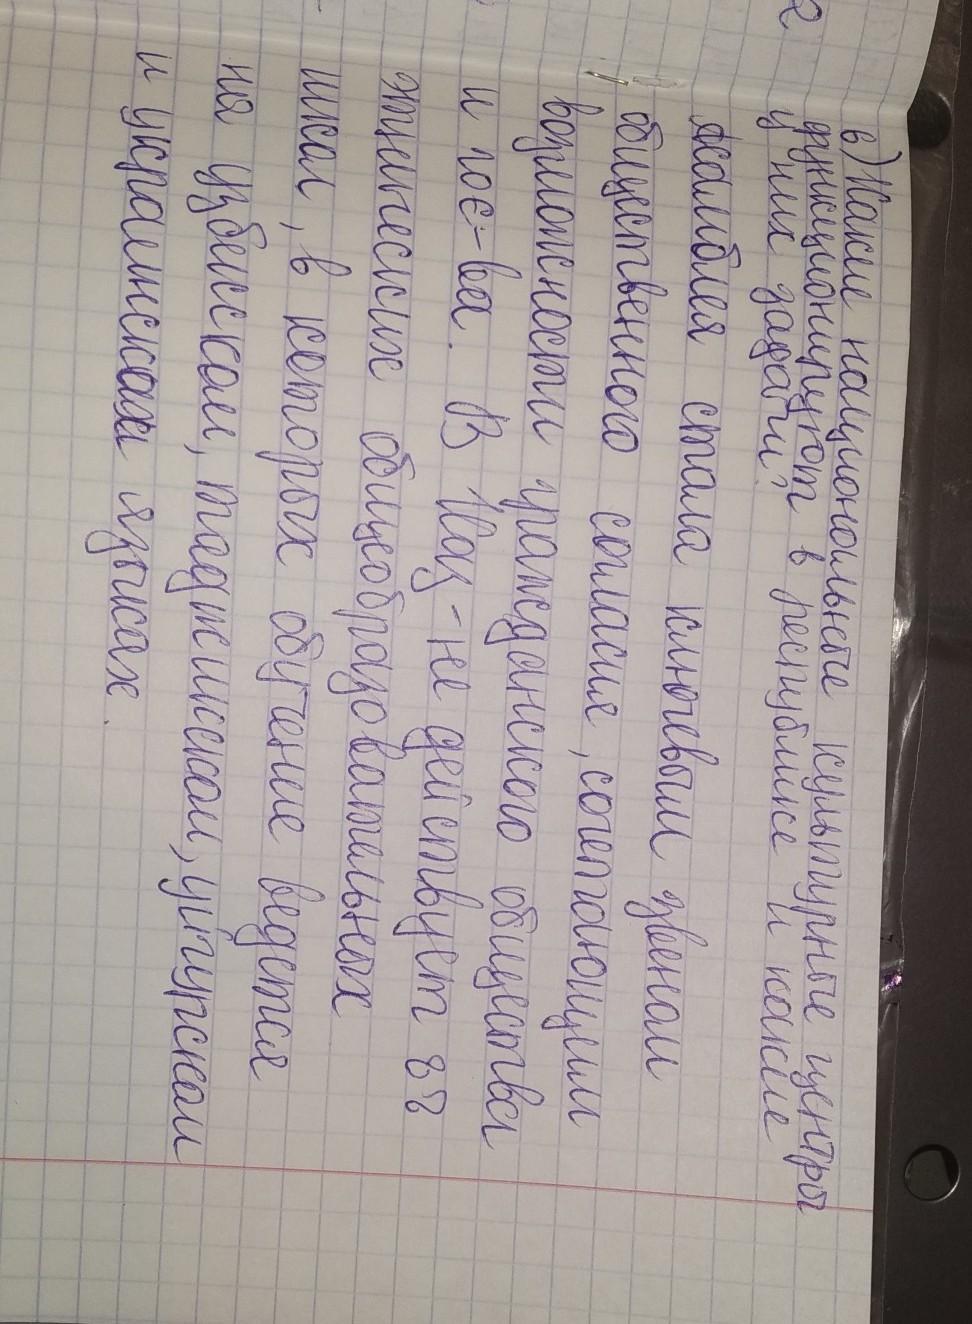 в) Какие национальные культурные центры
функционируют в республике и какие
у них задачи?
Асамблея стала ключевым звеном
общественного согласия, сочетающим
возможности гражданского общества
и гос-ва. В Каз-не действует 88
этнических общеобразовательных
школ, в которых обучение ведется
на узбекском, таджикском, уйгурском
и украинском языках.